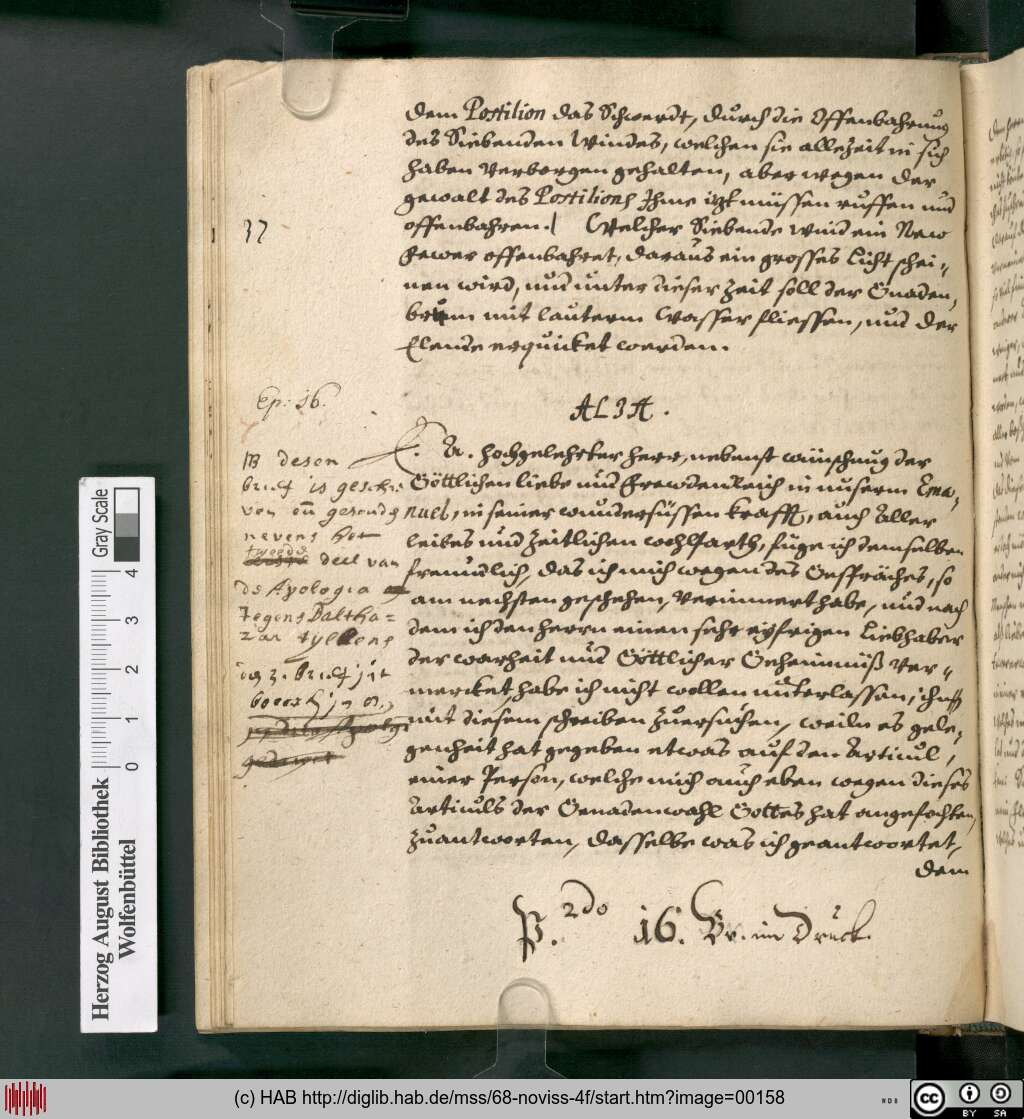 dem Postilion das Schwerdt, durch die Offenbahrung
des Siebenden Windes, welchen sie allezeit in sich
haben verborgen gehalten, aber wegen der
gewalt des Postilions Ihme itzt müssen ruffen und
offenbahren. Welcher Siebende wind ein New
fewer offenbahret, daraus ein grosses Licht schei-
nen wird, und unter dieser Zeit soll der Gnaden-
brunn mit lauterm Wasser fliessen, und der
Elende erquicket werden.
37
Ep: 16.
ALIA.
E. A. Hochgelehrter Herr, nebenst wünschung der
Göttlichen Liebe und Frewdenreich in unserm Ema-
nuel, in seiner wundersüssen krafft, auch Aller
leibes und Zeitlichen wohlfarth, füge ich demselben
freundlich, das ich mich wegen des Gespräches, so
am nechsten geschehen, verinnert habe, und nach
dem ich den herrn einen sehr eyfrigen Liebhaber
der warheit und Göttlicher Geheimniß ver-
mercket, habe ich nicht wollen unterlassen, ihn
mit diesem schreiben zuersuchen, weiln es gele-
genheit hat gegeben etwas auf den Articul,
einer Person, welche mich auch eben wegen dieses
Articuls der Genadenwahl Gottes hat angefochten,
zuantworten, dasselbe was ich geantwortet,
dem
NB desen
brief is geschr
ven en gesonde
nevens het
tweede deel van
de Apologia
tegens Baltha=
zar tylkens
P. 2do 16. Br. im Druck.
Gray Scale
0 1 2 3 4
Herzog August Bibliothek
Wolfenbüttel
(c) HAB http://diglib.hab.de/mss/68-noviss-4f/start.htm?image=00158
WDB
cc BY SA